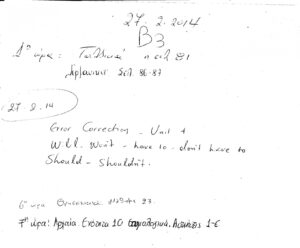 27.2.2014
B3
1η ώρα: σελ 81
σελ. 86-87
27 2.14
Error Correction - Unit 4
Will - Won't - have to - don't have to
Should - Shouldn't.
6η ώρα 23.
7η ώρα: Αρχαία Ενότητα 10 Ασκήσεις 1-6